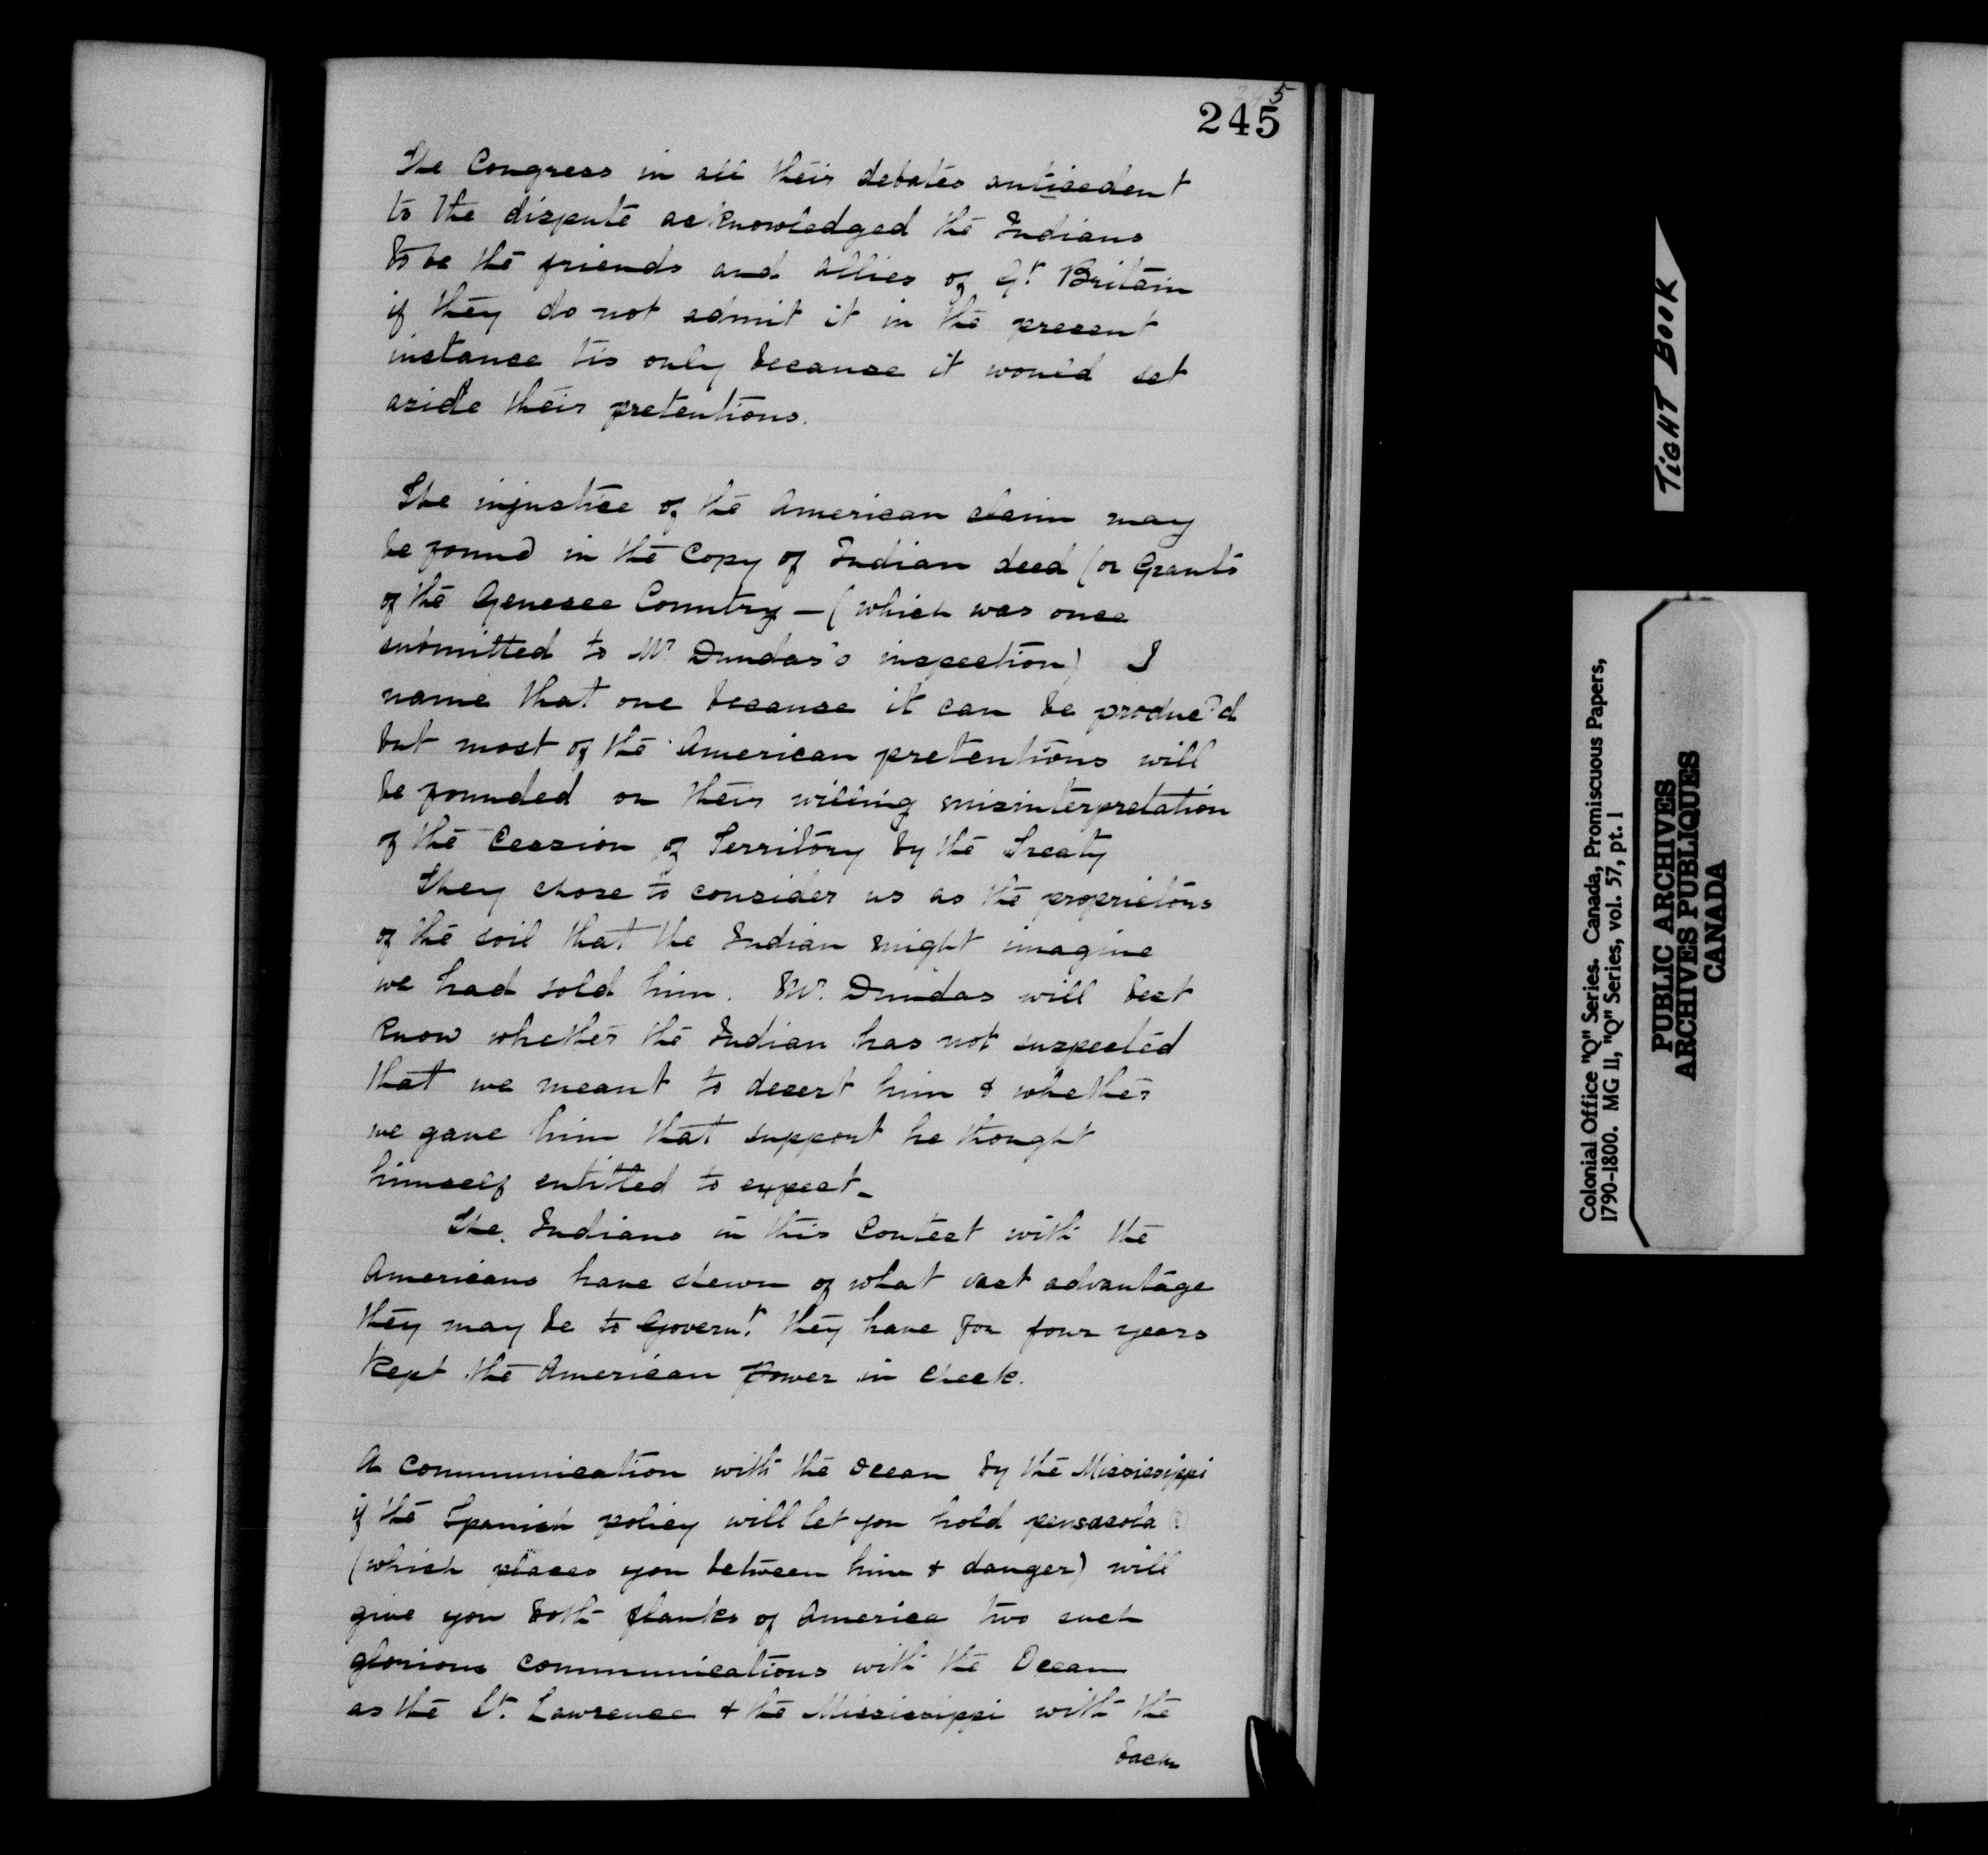 245
245
The Congress in all their debates anticedent
to the dispute acknowledged the Indians
to be the friends and allies of Gt. Britain
if they do not admit it in the present
instance tis only because it would set
aside their pretentions.
The injustice of the American claim may
be found in the Copy of Indian deed (or Grants
of the Genesee Country – (which was once
submitted to Mr Dundas's inspection) I
name that one because it can be produc'd
but most of the American pretentions will
be founded on their willing misinterpretation
of the Cession of Territory by the Treaty
They chose to consider us as the proprietors
of the soil that the Indian might imagine
we had sold him. Mr. Dundas will best
know whether the Indian has not suspected
that we meant to desert him & whether
we gave him that support he thought
himself entitled to expect –
The Indians in this Contest with the
Americans have shewn of what vast advantage
they may be to Governt. they have for four years
kept the American power in check.
A communication with the ocean by the Mississippi
if the Spanish policy will let you hold pensacola
(which places you between him & danger) will
give you both flanks of America two such
glorious communications with the Ocean
as the St. Lawrence & the Mississippi with the
back
TIGHT BOOK
Colonial Office "Q" Series. Canada, Promiscuous Papers,
1790-1800. MG 11, "Q" Series, vol. 57, pt. 1
PUBLIC ARCHIVES
ARCHIVES PUBLIQUES
CANADA